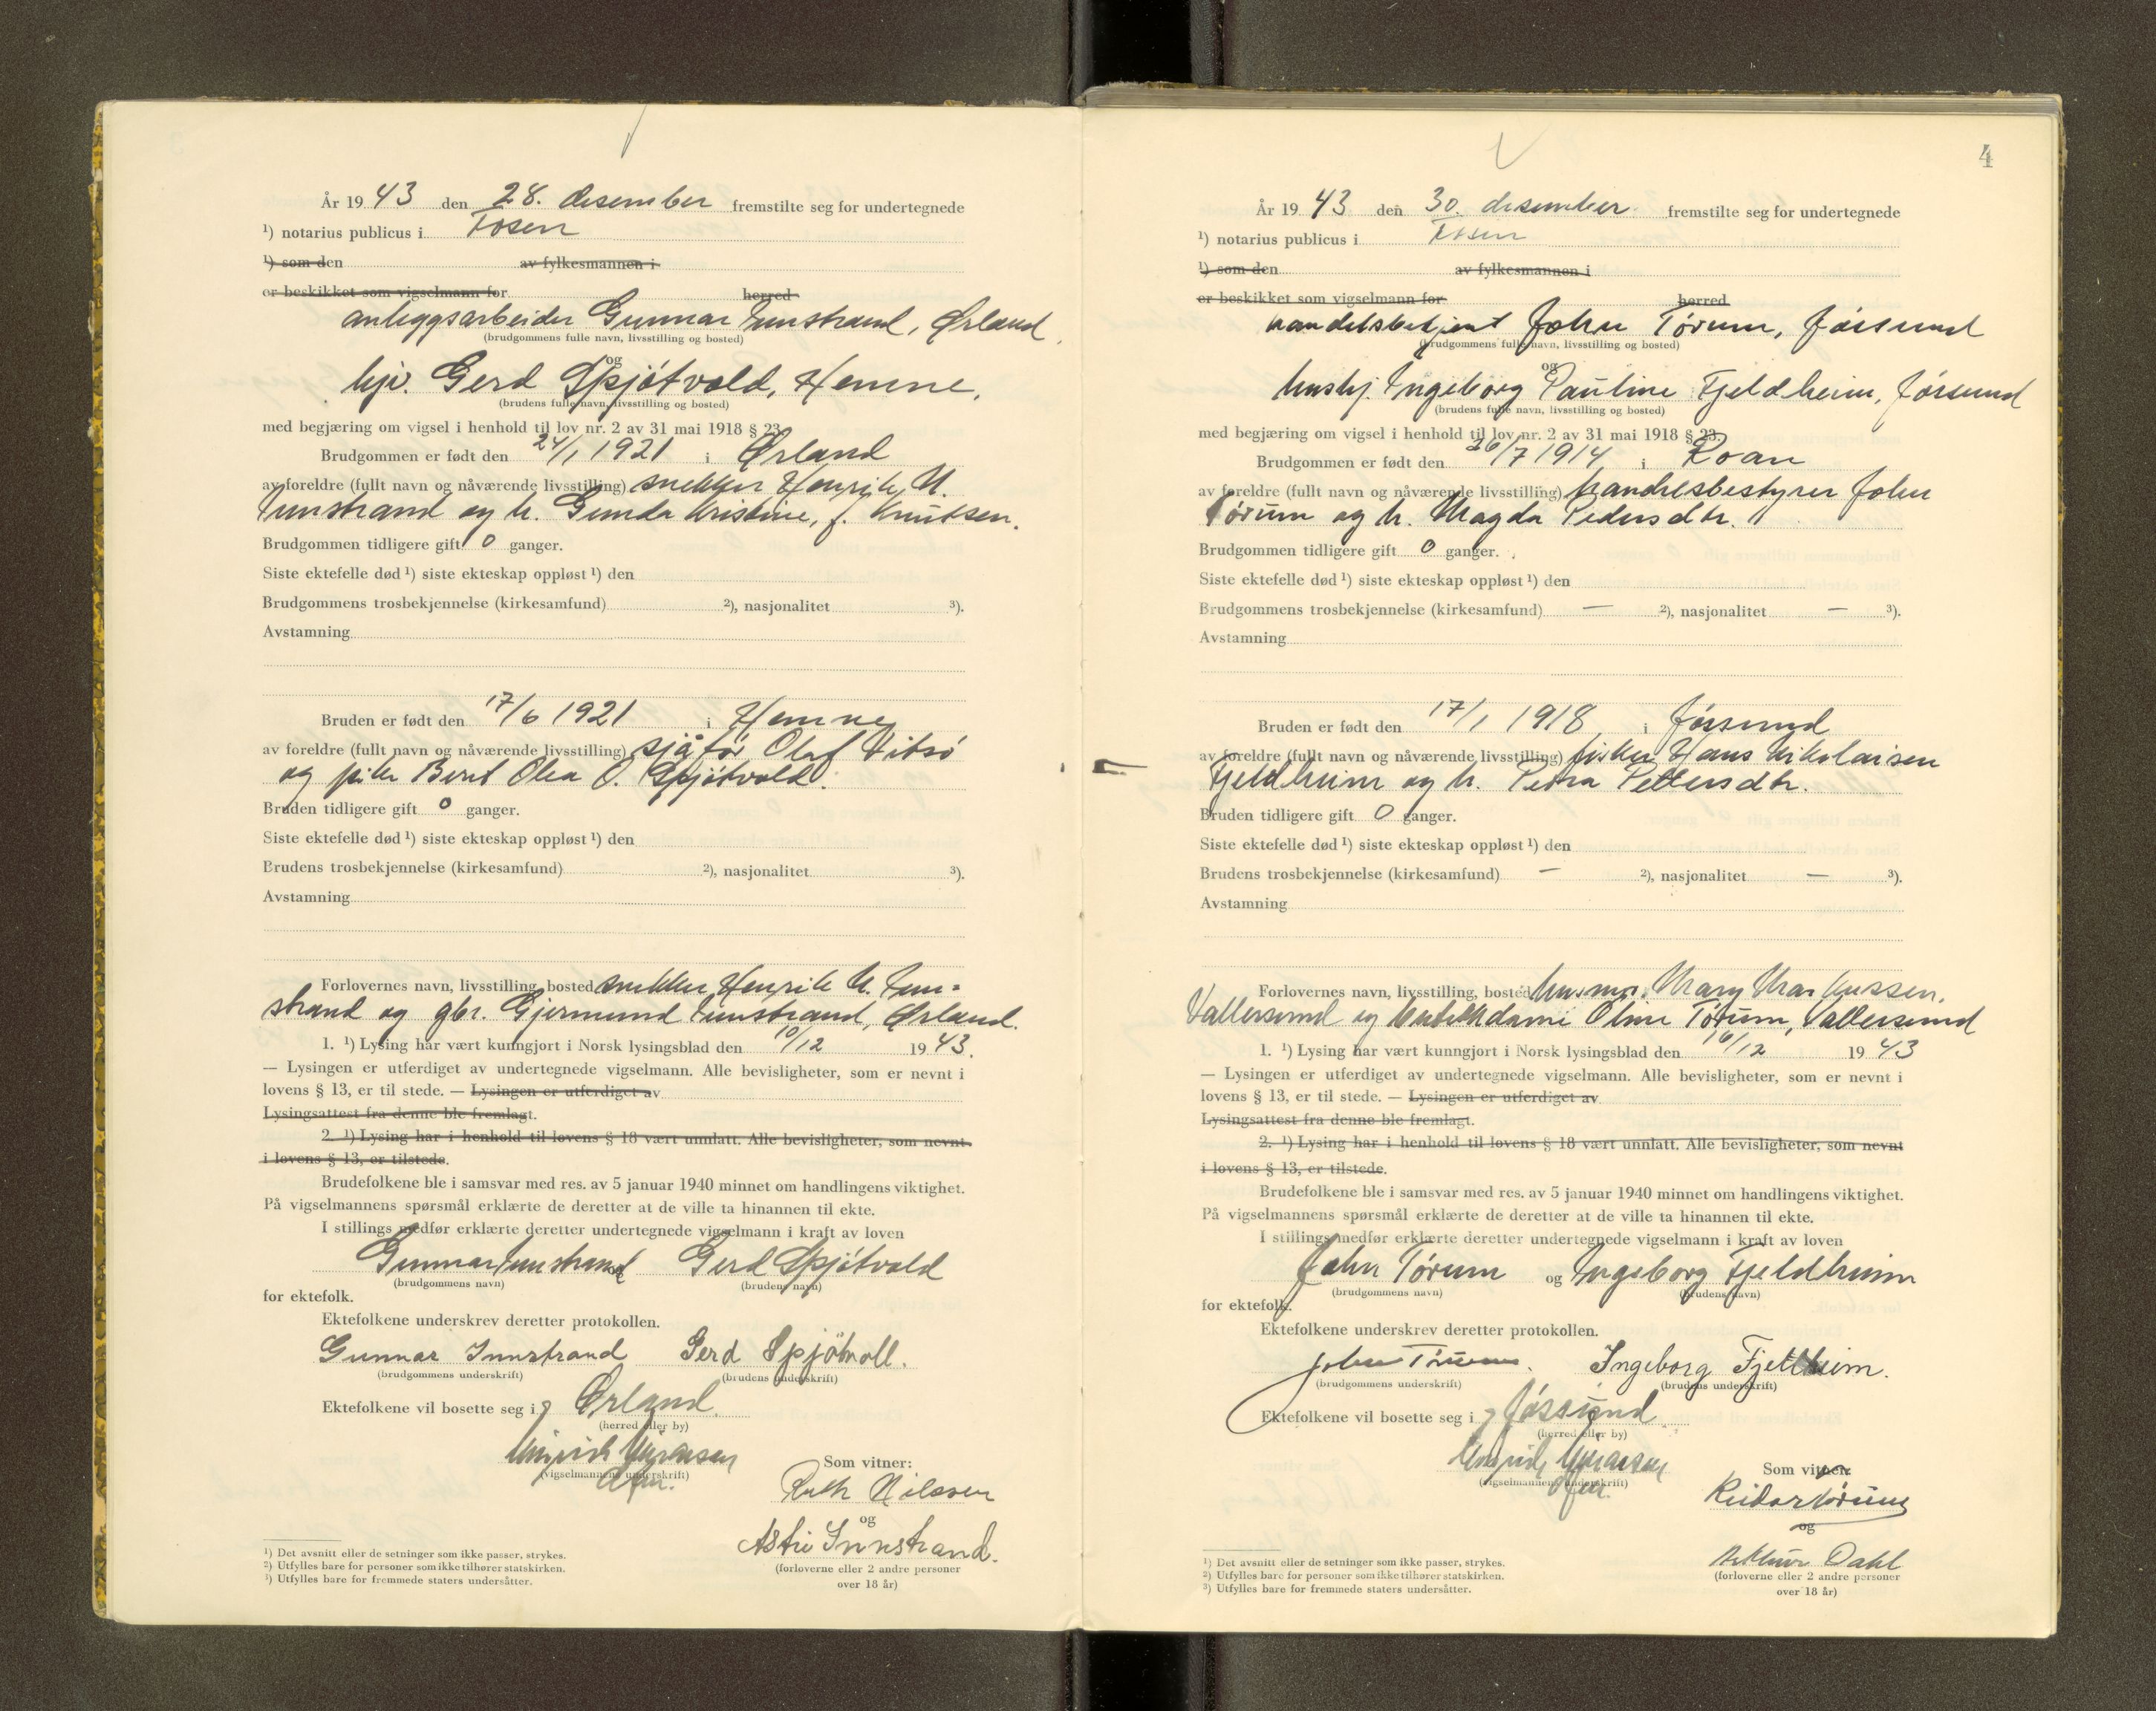 År 1943 den 28. desember fremstilte seg for undertegnede
¹) notarius publicus i Fosen
¹) som den av fylkesmannen i
er beskikket som vigselmann for herred
anleggsarbeider Gunnar Innstrand, Ørland
(brudgommens fulle navn, livsstilling og bosted)
og
hjv. Gerd Spjøtvold, Hemne.
(brudens fulle navn, livsstilling og bosted)
med begjæring om vigsel i henhold til lov nr. 2 av 31 mai 1918 § 23.
Brudgommen er født den 24/1 1921 i Ørland
av foreldre (fullt navn og nåværende livsstilling) snekker Henrik M.
Innstrand og h. Gunda Kristine, f. Knutsen.
Brudgommen tidligere gift 0 ganger.
Siste ektefelle død ¹) siste ekteskap oppløst ¹) den
Brudgommens trosbekjennelse (kirkesamfund) ²), nasjonalitet ³).
Avstamning
Bruden er født den 17/6 1921 i Hemne
av foreldre (fullt navn og nåværende livsstilling) sjåfør Olaf Vitsø
og pike Berit Olea O. Spjøtvold.
Bruden tidligere gift 0 ganger.
Siste ektefelle død ¹) siste ekteskap oppløst ¹) den
Brudens trosbekjennelse (kirkesamfund) ²), nasjonalitet ³).
Avstamning
Forlovernes navn, livsstilling, bosted snekker Henrik M. Inn=
strand og gbr. Gjermund Innstrand, Ørland.
1. ¹) Lysing har vært kunngjort i Norsk lysingsblad den 10/12 1943.
— Lysingen er utferdiget av undertegnede vigselmann. Alle bevisligheter, som er nevnt i
lovens § 13, er til stede. — Lysingen er utferdiget av
Lysingsattest fra denne ble fremlagt.
2. ¹) Lysing har i henhold til lovens § 18 vært unnlatt. Alle bevisligheter, som nevnt
i lovens § 13, er tilstede.
Brudefolkene ble i samsvar med res. av 5 januar 1940 minnet om handlingens viktighet.
På vigselmannens spørsmål erklærte de deretter at de ville ta hinannen til ekte.
I stillings medfør erklærte deretter undertegnede vigselmann i kraft av loven
Gunnar Innstrand Gerd Spjøtvold
(brudgommens navn) (brudens navn)
for ektefolk.
Ektefolkene underskrev deretter protokollen.
Gunnar Innstrand Gerd Spjötvoll.
(brudgommens underskrift) (brudens underskrift)
Ektefolkene vil bosette seg i Ørland.
(herred eller by)
(vigselmannens underskrift)
Som vitner:
Ruth Nilssen
og
Astri Innstrand.
(forloverne eller 2 andre personer
over 18 år)
¹) Det avsnitt eller de setninger som ikke passer, strykes.
²) Utfylles bare for personer som ikke tilhører statskirken.
³) Utfylles bare for fremmede staters undersåtter.
4
År 1943 den 30. desember fremstilte seg for undertegnede
¹) notarius publicus i Fosen
¹) som den av fylkesmannen i
er beskikket som vigselmann for herred
handelsbetjent John Tørum, Jøssund
(brudgommens fulle navn, livsstilling og bosted)
og
hushj. Ingeborg Pauline Fjeldheim, Jøssund
(brudens fulle navn, livsstilling og bosted)
med begjæring om vigsel i henhold til lov nr. 2 av 31 mai 1918 § 23.
Brudgommen er født den 26/7 1914 i Roan
av foreldre (fullt navn og nåværende livsstilling) handelsbestyrer John
Tørum og h. Magda Pedersdtr.
Brudgommen tidligere gift 0 ganger.
Siste ektefelle død ¹) siste ekteskap oppløst ¹) den
Brudgommens trosbekjennelse (kirkesamfund) — ²), nasjonalitet — ³).
Avstamning
Bruden er født den 17/1 1918 i Jøssund
av foreldre (fullt navn og nåværende livsstilling) fisker Hans Nikolaisen
Fjeldheim og h. Petra Pettersdtr.
Bruden tidligere gift 0 ganger.
Siste ektefelle død ¹) siste ekteskap oppløst ¹) den
Brudens trosbekjennelse (kirkesamfund) — ²), nasjonalitet — ³).
Avstamning
Forlovernes navn, livsstilling, bosted husmor Mary Markussen,
Vallersund og butikkdame Oline Tørum, Vallersund
1. ¹) Lysing har vært kunngjort i Norsk lysingsblad den 16/12 1943
— Lysingen er utferdiget av undertegnede vigselmann. Alle bevisligheter, som er nevnt i
lovens § 13, er til stede. — Lysingen er utferdiget av
Lysingsattest fra denne ble fremlagt.
2. ¹) Lysing har i henhold til lovens § 18 vært unnlatt. Alle bevisligheter, som nevnt
i lovens § 13, er tilstede.
Brudefolkene ble i samsvar med res. av 5 januar 1940 minnet om handlingens viktighet.
På vigselmannens spørsmål erklærte de deretter at de ville ta hinannen til ekte.
I stillings medfør erklærte deretter undertegnede vigselmann i kraft av loven
John Tørum og Ingeborg Fjeldheim
(brudgommens navn) (brudens navn)
for ektefolk.
Ektefolkene underskrev deretter protokollen.
John Tørum. Ingeborg Fjeldheim.
(brudgommens underskrift) (brudens underskrift)
Ektefolkene vil bosette seg i Jøssund
(herred eller by)
(vigselmannens underskrift)
Som vitner:
Reidar Tørum
og
Arthur Dahl
(forloverne eller 2 andre personer
over 18 år)
¹) Det avsnitt eller de setninger som ikke passer, strykes.
²) Utfylles bare for personer som ikke tilhører statskirken.
³) Utfylles bare for fremmede staters undersåtter.